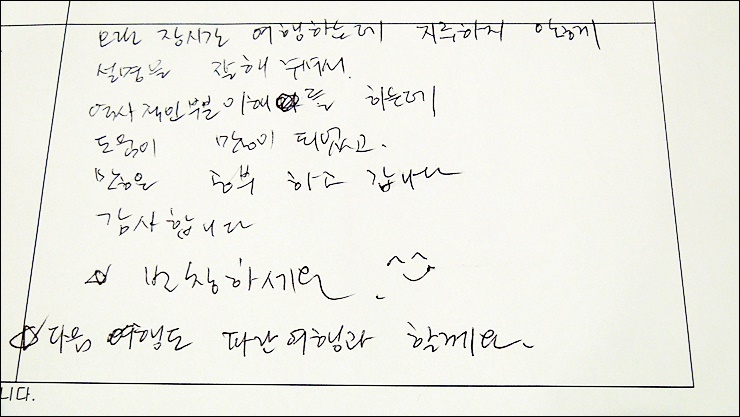 오랜 장시간 여행하는데 지루하지 않게
설명을 잘해 주셔서.
역사적인 부분 이해를 하는데
도움이 많이 되었고.
많은 공부 하고 갑니다
감사합니다
☆ 번창하세요. ^^
☆ 다음 여행도 파란여행과 할께요.
니다.